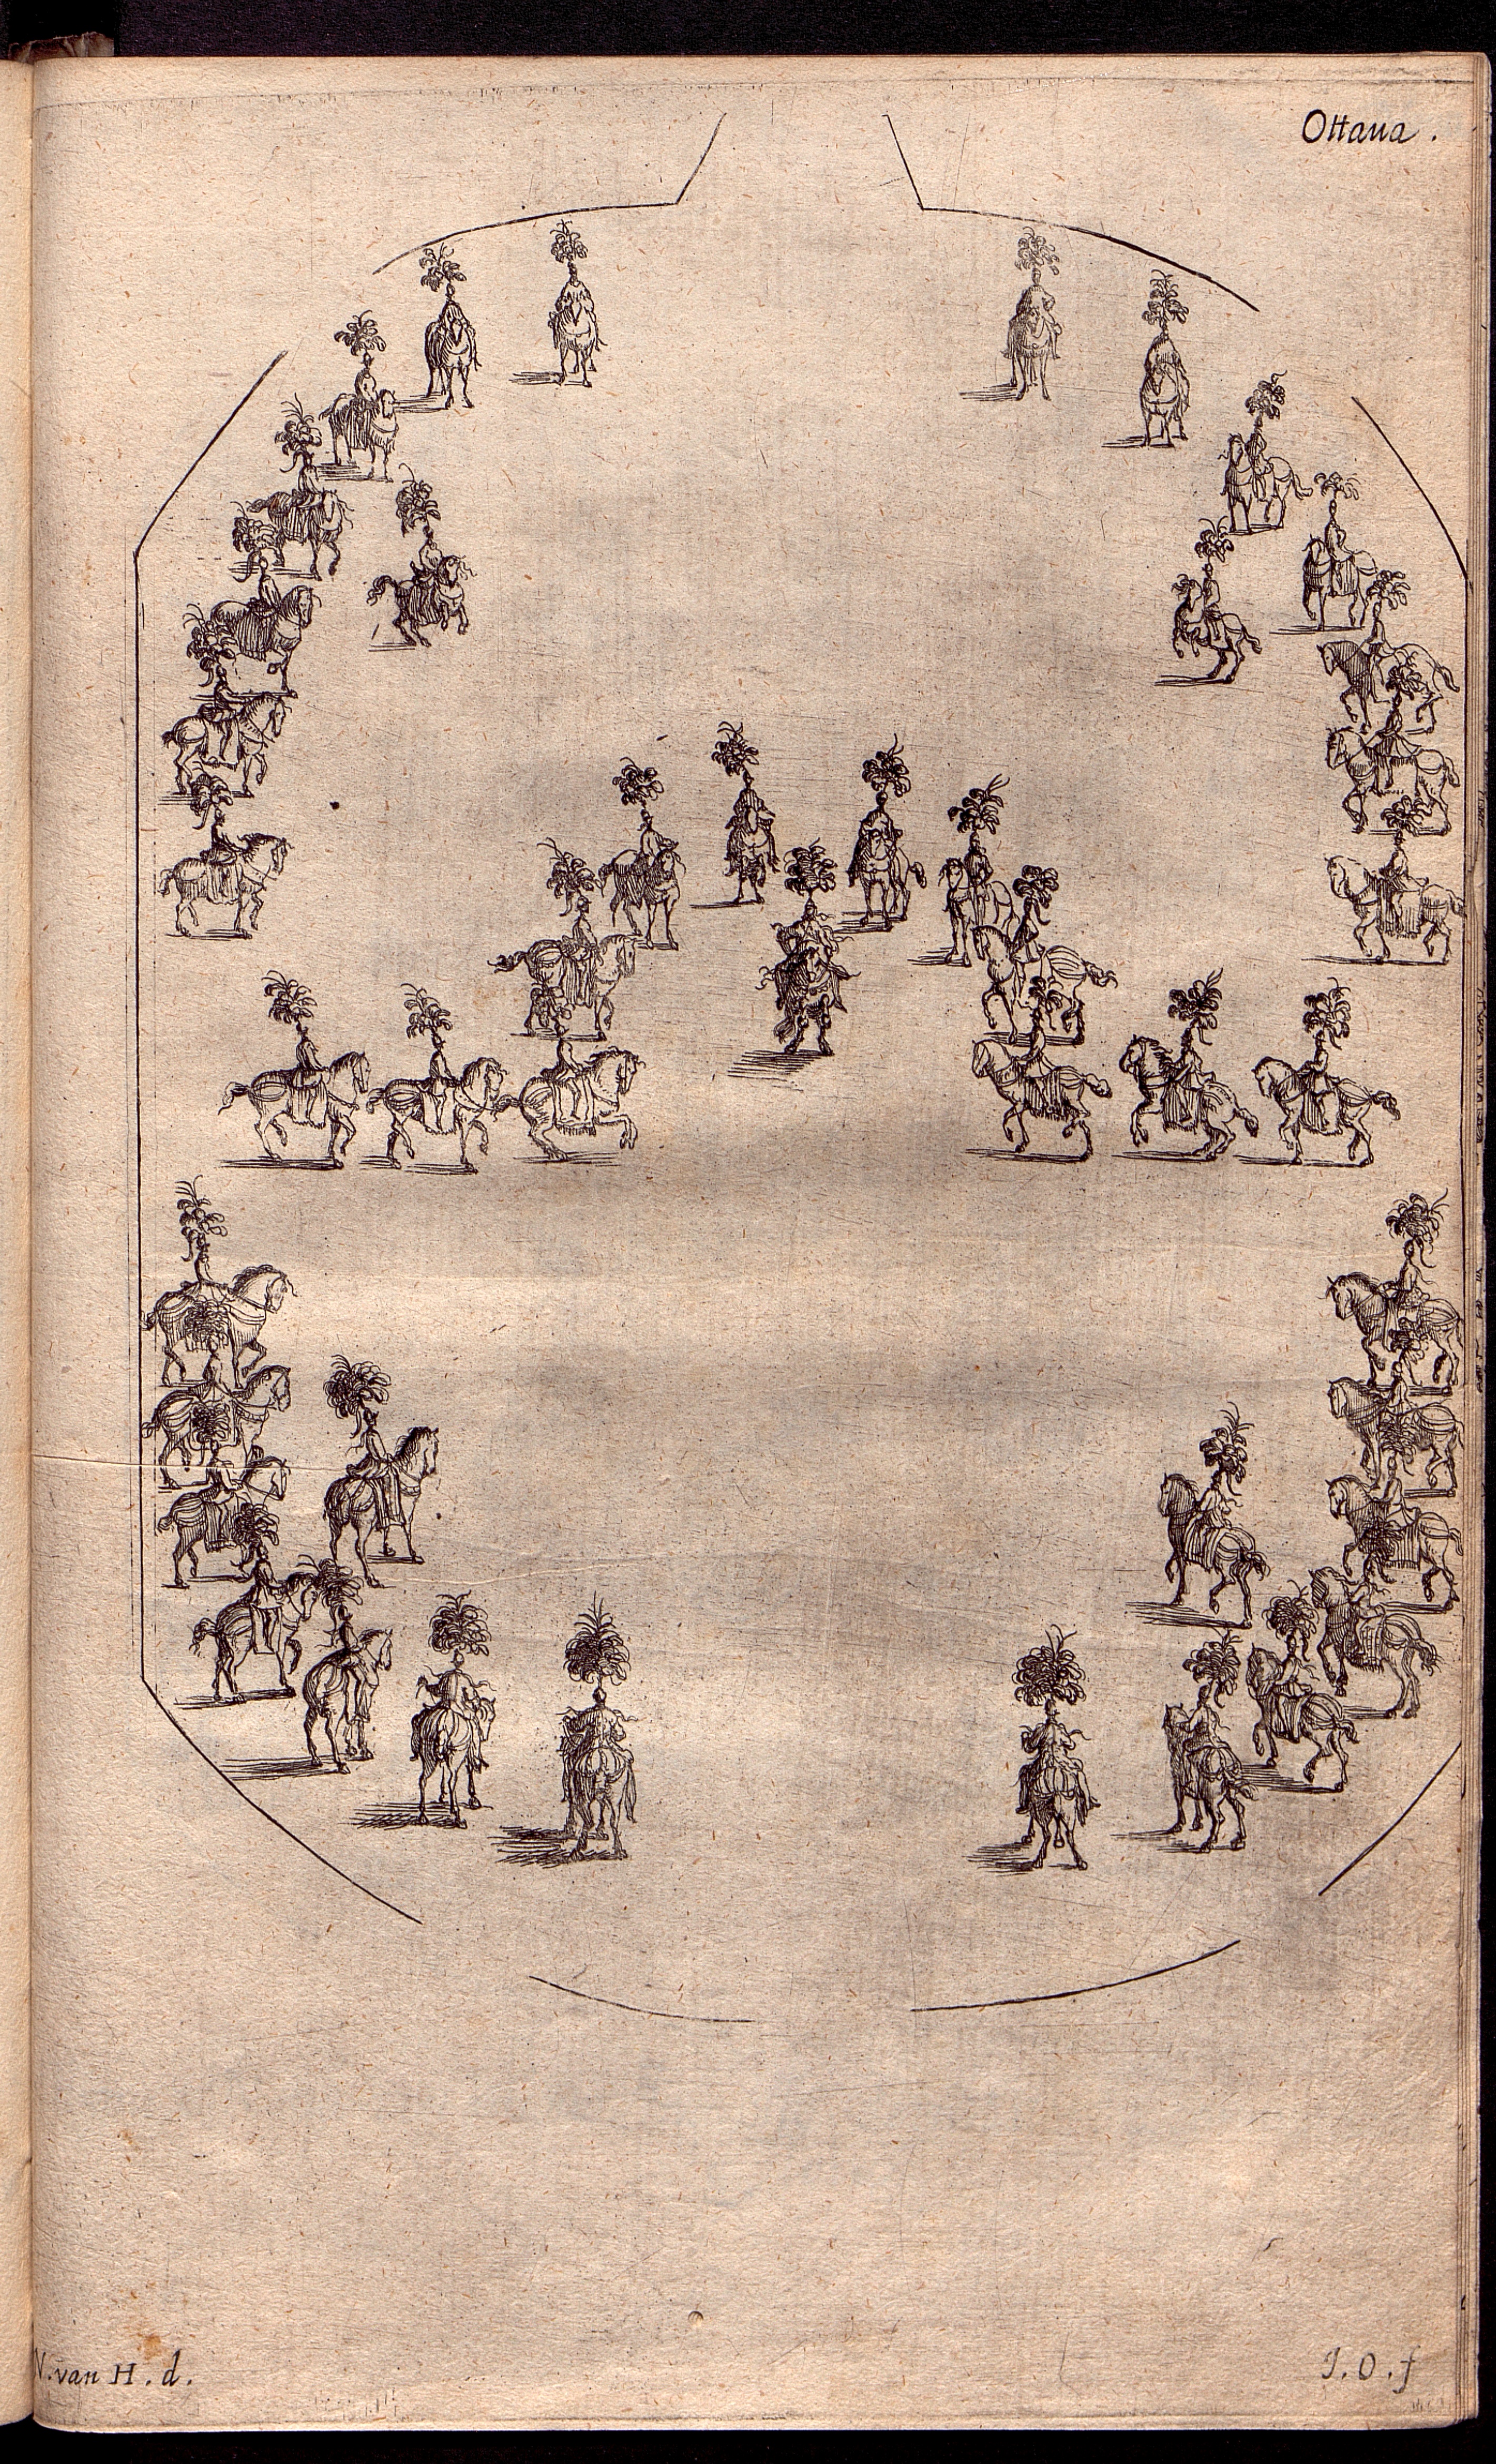 Ottaua.
V. van H. d.
J. O. f